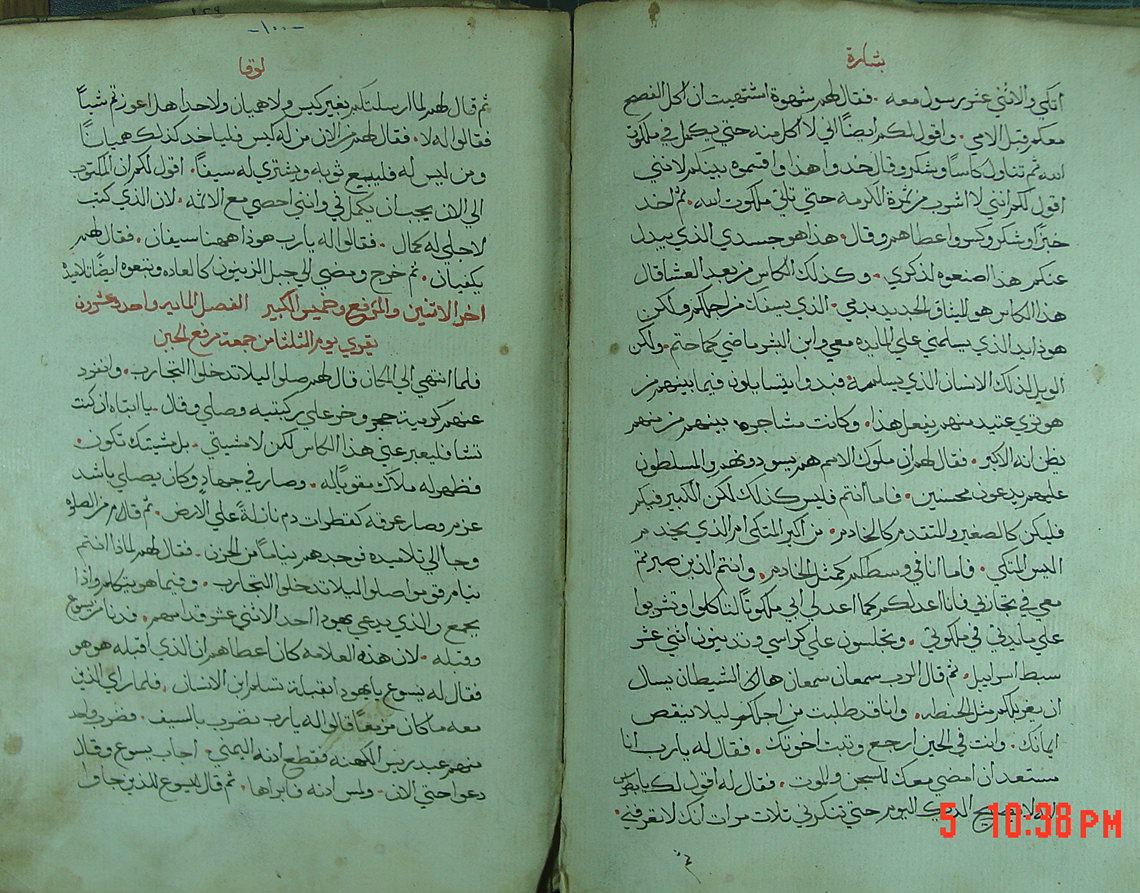 بشارة
اتكي والاثني عشر رسول معه. فقال لهم شهوة اشتهيت ان اكل الفصح
معكم قبل الامي. واقول لكم ايضاً اني لا اكل منه حتي يكمل في ملكوت
الله ثم تناول كاساً وشكر وقال خدوا هذا واقتسموه بينكم لانني
اقول لكم انني لا اشرب من ثمرة الكرمه حتي تاتي ملكوت الله. ثم اخد
خبزاً وشكر وكسر واعطاهم وقال. هذا هو جسدي الذي يبدل
عنكم هذا اصنعوه لذكري. وكذلك الكاس من بعد العشا قال
هذا الكاس هو الميثاق الجديد بدمي. الذي يسفك من اجلكم ولكن
هوذا يد الذي يسلمني علي المايده معي وابن البشر ماضي كما حتم. ولكن
الويل لذلك الانسان الذي يسلمه. فبدوا يتسايلون فيما بينهم من
هو تري عتيد منهم يفعل هذا. وكانت مشاجره بينهم من منهم
يظن انه الاكبر. فقال لهم ان ملوك الامم هم يسودونهم والمسلطون
عليهم يدعون محسنين. فاما انتم فليس كذلك لكن الكبير فيكم
فليكن كالصغير والمتقدم كالخادم. من اكبر المتكي ام الذي يخدم
اليس المتكي. فاما انا في وسطكم كمثل الخادم. وانتم الذين صبرتم
معي في تجاربي فانا اعد لكم كما اعد لي ابي ملكوتاً لتاكلوا وتشربوا
علي مايدتي في ملكوتي. وتجلسون علي كراسي وتدينون اثني عشر
سبط اسراييل. ثم قال الرب سمعان سمعان هاك الشيطان يسال
ان يغربلكم مثل الحنطه. وانا قد طلبت من اجلكم ليلا ينقص
ايمانك. وانت في الحين ارجع وثبت اخوتك. فقال له يارب انا
مستعد ان امضي معك للسجن والموت. فقال له اقول لك يابطرس
انه لا يصيح الديك اليوم حتي تنكرني تلات مرات انك لا تعرفني.
-١٠٠-
لوقا
ثم قال لهم لما ارسلتكم بغير كيس ولا هميان ولا حدا هل اعوزتم شياً
فقالوا له لا. فقال لهم من الان من له كيس فلياخد كذلك همياناً
ومن ليس له فليبيع ثوبه ويشتري له سيفاً. اقول لكم ان المكتوب
الي الان يجب ان يكمل في وانني احصي مع الاثمه. لان الذي كتب
لاجلي له كمال. فقالوا له يارب هوذا ههنا سيفان. فقال لهم
يكفيان. ثم خرج ومضي الي جبل الزيتون كالعاده وتبعوه ايضاً تلاميذه
اخر الاتنين والمرفع وخميس الكبير الفصل المايه واحد وعشرون
يقري يوم الثلثا من جمعة مرفع الجبن
فلما انتهي الي المكان قال لهم صلوا ليلا تدخلوا التجارب. وانفرد
عنهم كرمية حجر وخر علي ركبتيه وصلي وقال. يا ابتاه ان كنت
تشا فليعبر عني هذا الكاس لكن لا مشيتي. بل مشيتك تكون.
فظهر له ملاك مقوياً له. وصار في جهادٍ وكان يصلي باشد
عزم وصار عرقه كقطرات دم نازلةً علي الارض. ثم قام من الصلاه
وجا الي تلاميده فوجدهم نياماً من الحزن. فقال لهم لماذا انتم
نيام قوموا صلوا ليلا تدخلوا التجارب. وفيما هو يتكلم واذا
بجمع والذي يدعي يهودا احد الاثني عشر قدامهم. فدنا من يسوع
وقبله. لان هذه العلامه كان اعطاهم ان الذي اقبله هو هو
فقال له يسوع يا يهودا بقبلة تسلم ابن الانسان. فلما راي الذين
معه ما كان مزمعاً قالوا له يارب نضرب بالسيف. فضرب واحد
منهم عبد ريس الكهنه فقطع ادنه اليمني. اجاب يسوع وقال
دعوا حتي الان. ولمس ادنه فابراها. ثم قال يسوع للذين جاوا
5 10:38 PM